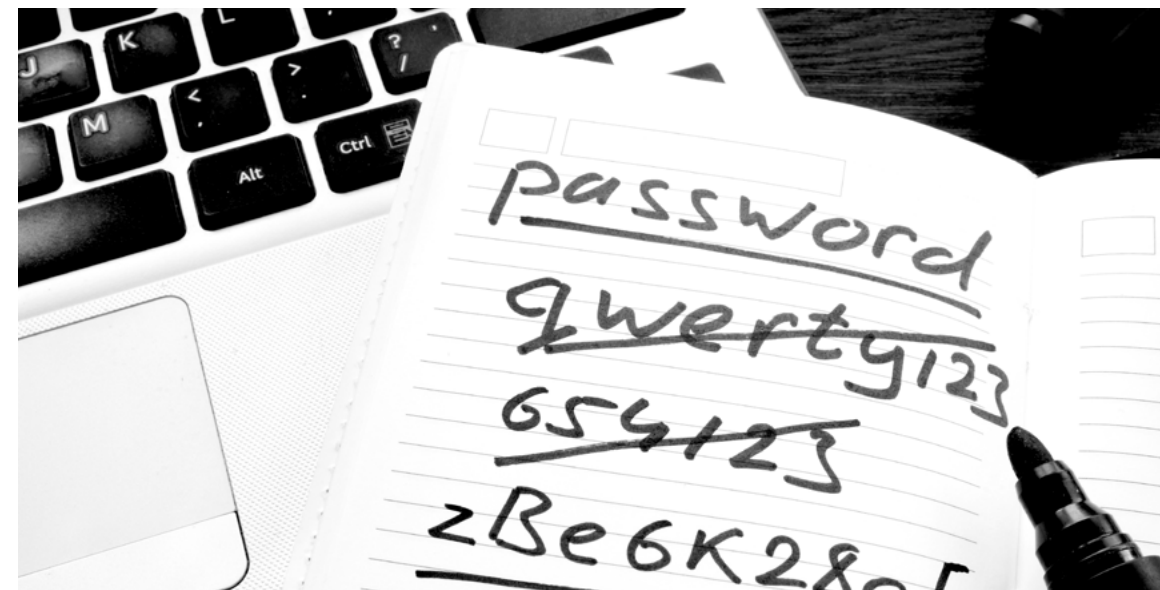 J K L ? /
M < , > .
Alt Ctrl
password
qwerty123
654123